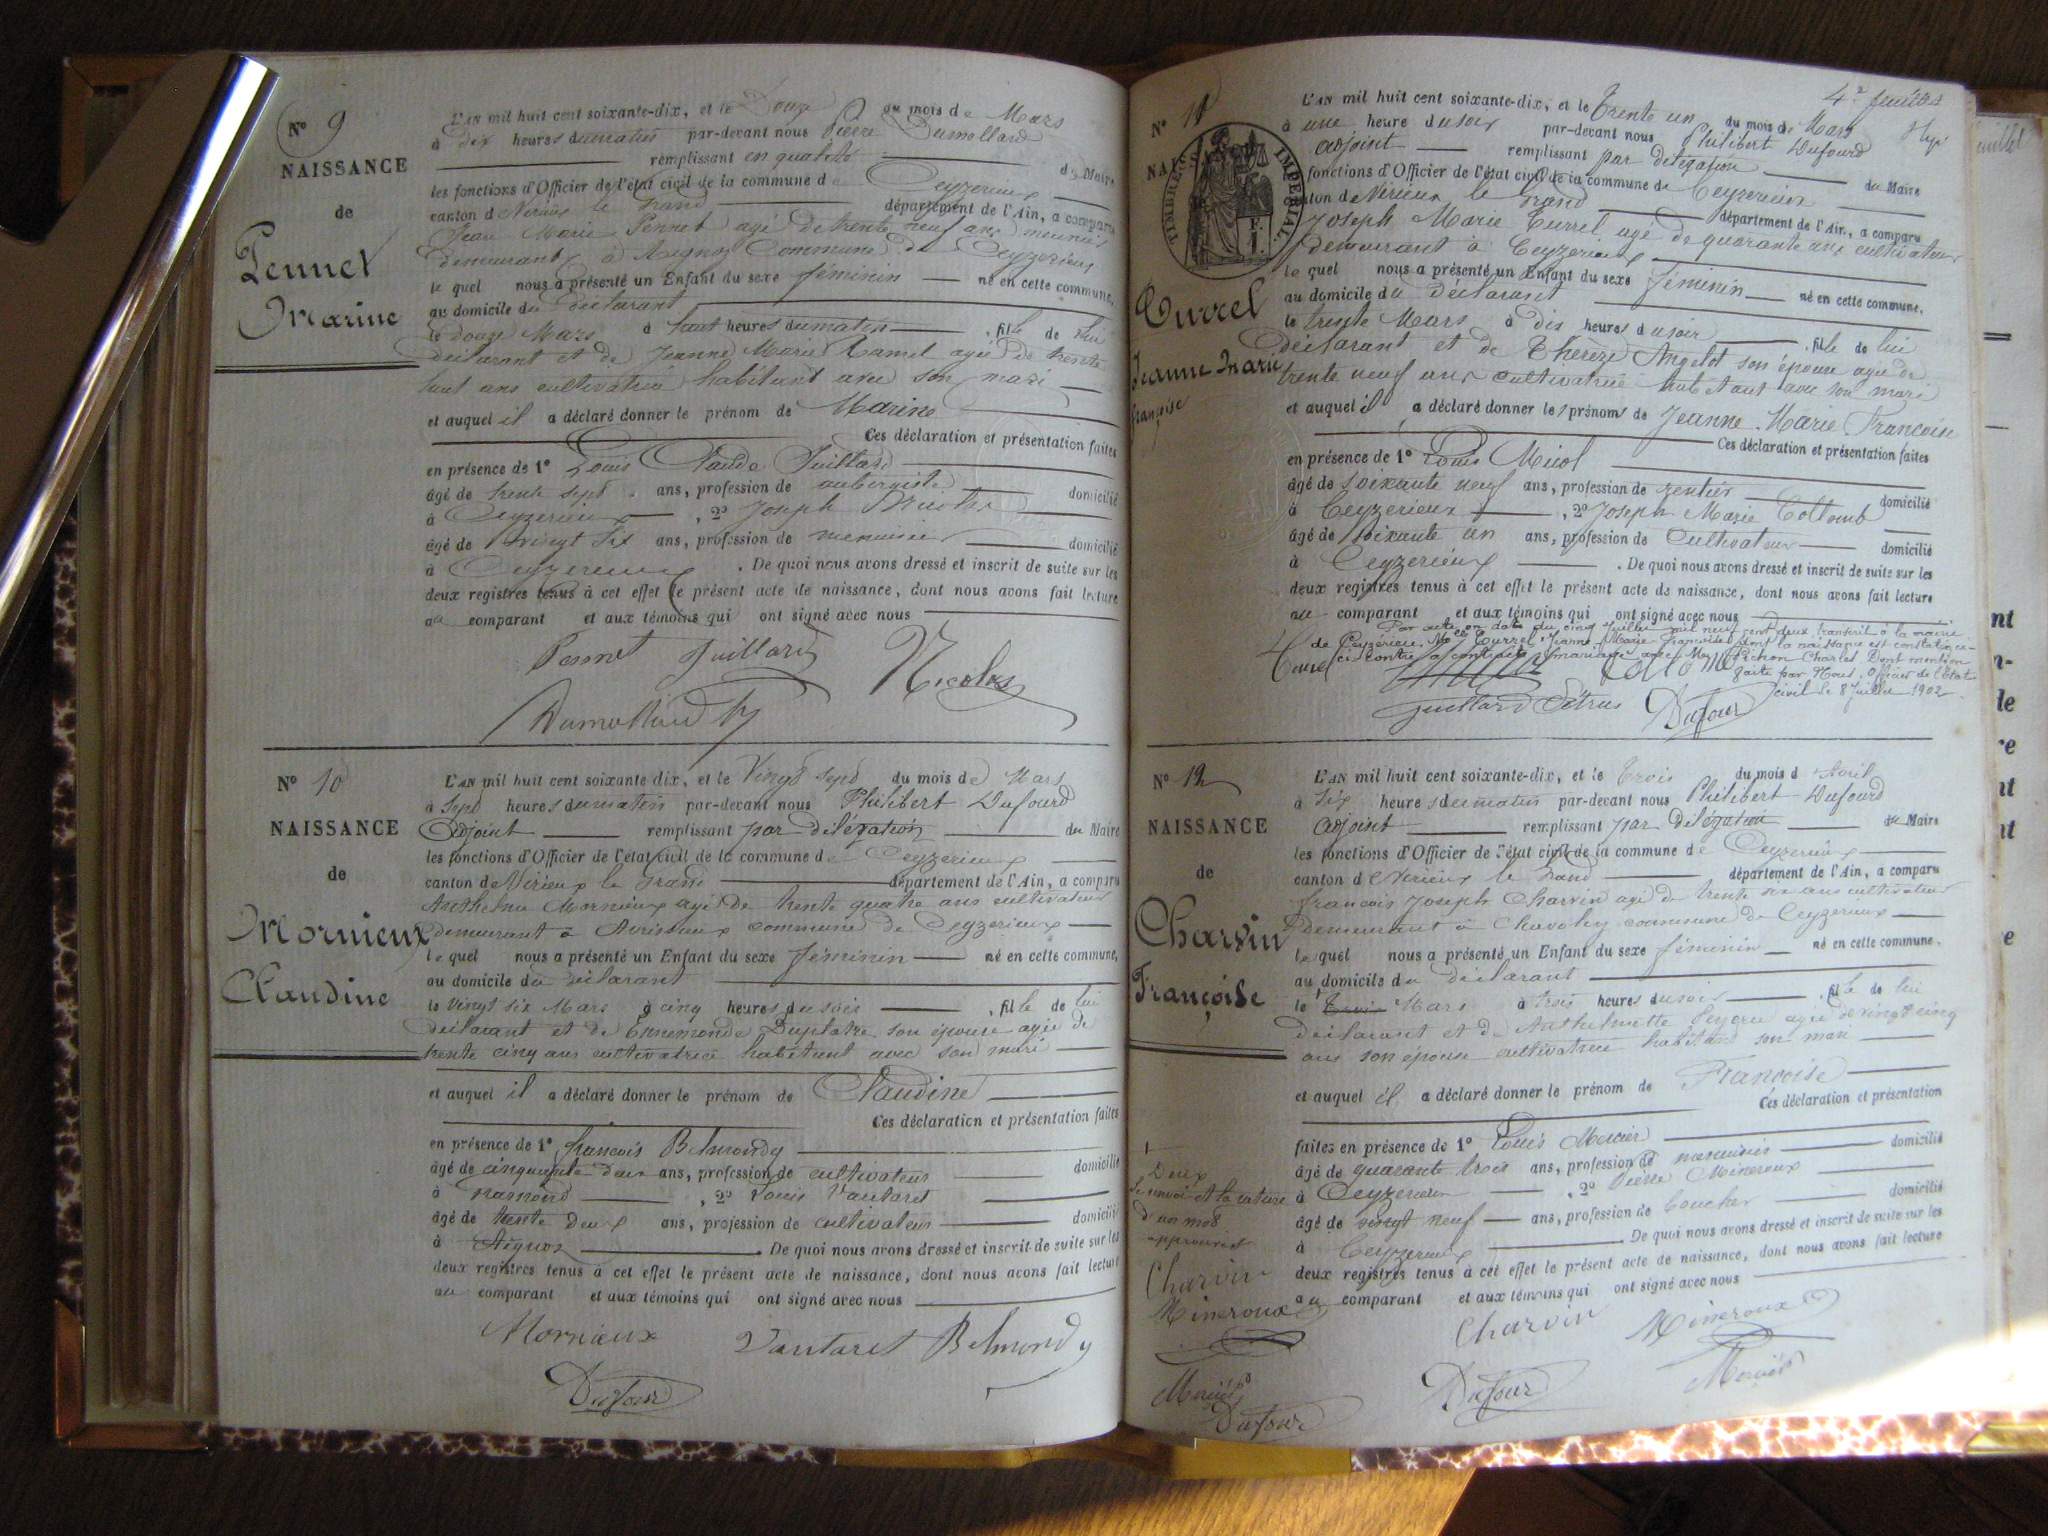 N° 9
NAISSANCE
de
Pennet
Marine
L'AN mil huit cent soixante-dix, et le Douze du mois de Mars
à dix heures du matin par-devant nous Pierre Dumollard
remplissant en qualité de Maire
les fonctions d'Officier de l'état civil de la commune de Ceyzerieux
canton de Virieux le Grand département de l'Ain, a comparu
Jean Marie Pennet agé de trente neuf ans meunier
demeurant à Aignoz Commune de Ceyzerieux
le quel nous a présenté un Enfant du sexe féminin né en cette commune,
au domicile du déclarant
le douze Mars à huit heures du matin, fille de lui
déclarant et de Jeanne Marie Ramel agée de trente
huit ans cultivatrice habitant avec son mari
et auquel il a déclaré donner le prénom de Marine
Ces déclaration et présentation faites
en présence de 1° Louis Claude Juillard
âgé de trente sept ans, profession de aubergiste domicilié
à Ceyzerieux, 2° Joseph Nicolas
âgé de vingt six ans, profession de menuisier domicilié
à Ceyzerieux. De quoi nous avons dressé et inscrit de suite sur les
deux registres tenus à cet effet le présent acte de naissance, dont nous avons fait lecture
au comparant et aux témoins qui ont signé avec nous
Pennet Juillard Nicolas
Dumollard
N° 10
NAISSANCE
de
Mornieux
Claudine
L'AN mil huit cent soixante dix, et le Vingt sept du mois de Mars
à sept heures du matin par-devant nous Philibert Dufourd
adjoint remplissant par délégation du Maire
les fonctions d'Officier de l'état civil de la commune de Ceyzerieux
canton de Virieux le Grand département de l'Ain, a comparu
Anthelme Mornieux agé de trente quatre ans cultivateur
demeurant à Avrissieux commune de Ceyzerieux
le quel nous a présenté un Enfant du sexe féminin né en cette commune,
au domicile du déclarant
le vingt six Mars à cinq heures du soir, fille de lui
déclarant et de Ennemonde son épouse agée de
trente cinq ans cultivatrice habitant avec son mari
et auquel il a déclaré donner le prénom de Claudine
Ces déclaration et présentation faites
en présence de 1° françois Belmondy
âgé de cinquante deux ans, profession de cultivateur domicilié
à, 2° Louis Vautaret
âgé de trente deux ans, profession de cultivateur domicilié
à Aignoz. De quoi nous avons dressé et inscrit de suite sur les
deux registres tenus à cet effet le présent acte de naissance, dont nous avons fait lecture
au comparant et aux témoins qui ont signé avec nous
Mornieux Vautaret Belmondy
Dufour
4e feuillet
N° 11
TIMBRE IMPÉRIAL
Turrel
Jeanne Marie
françoise
L'AN mil huit cent soixante-dix, et le Trente un du mois de Mars
à une heure du soir par-devant nous Philibert Dufourd
adjoint remplissant par délégation du Maire
fonctions d'Officier de l'état civil de la commune de Ceyzerieux
canton de Virieux le Grand département de l'Ain, a comparu
Joseph Marie Turrel agé de quarante ans cultivateur
demeurant à Ceyzerieux
le quel nous a présenté un Enfant du sexe féminin né en cette commune,
au domicile du déclarant
le trente Mars à dix heures du soir, fille de lui
déclarant et de Thérèze Angelot son épouse agée de
trente neuf ans cultivatrice habitant avec son mari
et auquel il a déclaré donner les prénoms de Jeanne Marie Françoise
Ces déclaration et présentation faites
en présence de 1° Louis Micol
âgé de soixante neuf ans, profession de rentier domicilié
à Ceyzerieux, 2° Joseph Marie Collomb
âgé de soixante un ans, profession de Cultivateur domicilié
à Ceyzerieux. De quoi nous avons dressé et inscrit de suite sur les
deux registres tenus à cet effet le présent acte de naissance, dont nous avons fait lecture
au comparant et aux témoins qui ont signé avec nous
Par acte en date du cinq Juillet mil neuf cent deux transcrit à la mairie
de Ceyzérieux, Melle Turrel Jeanne Marie Françoise dont la naissance est constatée
ci-contre a contracté mariage avec Mr Pichon Charles. Dont mention
faite par Nous, Officier de l'État
civil le 8 Juillet 1902
Turrel
Juillard Pétrus Dufour
N° 12
NAISSANCE
de
Charvin
Françoise
L'AN mil huit cent soixante-dix, et le trois du mois d'Avril
à six heures du matin par-devant nous Philibert Dufourd
adjoint remplissant par délégation du Maire
les fonctions d'Officier de l'état civil de la commune de Ceyzerieux
canton de Virieux le Grand département de l'Ain, a comparu
françois Joseph Charvin agé de trente six ans cultivateur
demeurant à Chavoley commune de Ceyzerieux
le quel nous a présenté un Enfant du sexe féminin né en cette commune.
au domicile du déclarant
le Mars à trois heures du soir, fille de lui
déclarant et de Anthelmette agée de vingt cinq
ans son épouse cultivatrice habitant son mari
et auquel il a déclaré donner le prénom de Françoise
Ces déclaration et présentation
faites en présence de 1° Louis Mercier
âgé de quarante trois ans, profession de menuisier domicilié
à Ceyzerieux, 2° Pierre Mineroux
âgé de vingt neuf ans, profession de boucher domicilié
à Ceyzerieux. De quoi nous avons dressé et inscrit de suite sur les
deux registres tenus à cet effet le présent acte de naissance, dont nous avons fait lecture
au comparant et aux témoins qui ont signé avec nous
Charvin Mineroux
Dufour Mercier
Deux
le renvoi et la rature
d'un mot
approuvés
Charvin
Mineroux
Mercier
Dufour